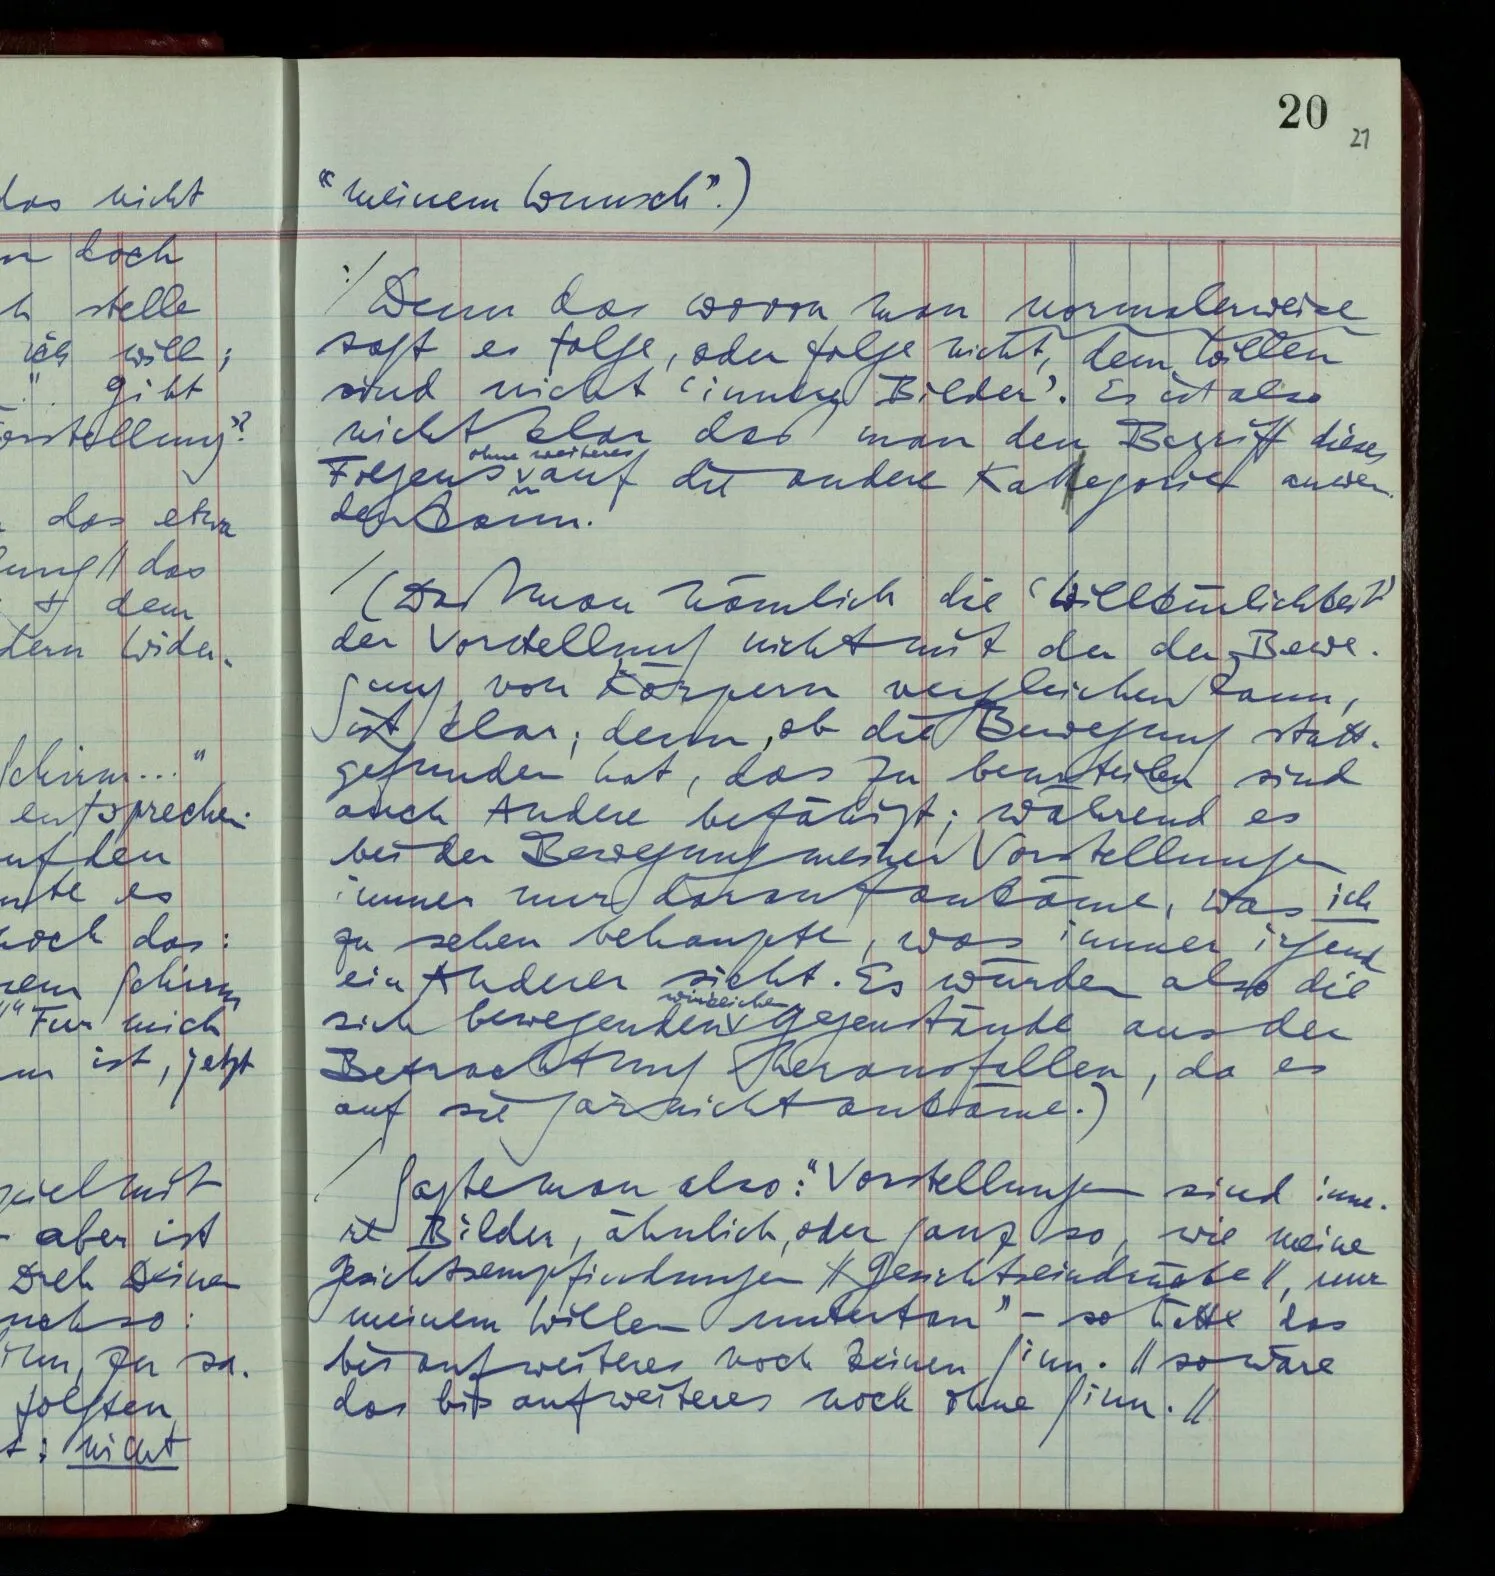 20
21
das nicht
doch
stelle
ich will;
gibt
das etwa
das
dem
"meinem Wunsch".)
Denn das wovon man normalerweise
sagt es folge, oder folge nicht, dem Willen
sind nicht 'innere Bilder'. Es ist also
nicht klar das man den Begriff dieses
Folgens ohne weiteres auf die andere Kategorie anwen-
den kann.
(Daß man nämlich die 'Willkürlichkeit'
der Vorstellung nicht mit der der Bewe-
gung von Körpern vergleichen kann,
ist klar; denn, ob die Bewegung statt-
gefunden hat, das zu beurteilen sind
auch Andere befähigt; während es
bei der Bewegung meiner Vorstellungen
immer nur darauf ankäme, was ich
zu sehen behaupte, was immer irgend
ein Anderer sieht. Es würden also die
sich bewegenden wirklichen Gegenstände aus der
Betrachtung herausfallen, da es
auf sie gar nicht ankäme.)
Sagte man also: "Vorstellungen sind inne-
re Bilder, ähnlich, oder ganz so, wie meine
Gesichtsempfindungen // Gesichtseindrücke //, nur
meinem Willen untertan" – so hätte das
bis auf weiteres noch keinen Sinn. // so wäre
das bis auf weiteres noch ohne Sinn. //
Schirm..."
auf den
es
noch das:
Schirm
Für mich
ist, jetzt
mit
aber ist
Dreh Deine
zu sa-
folgten
nicht